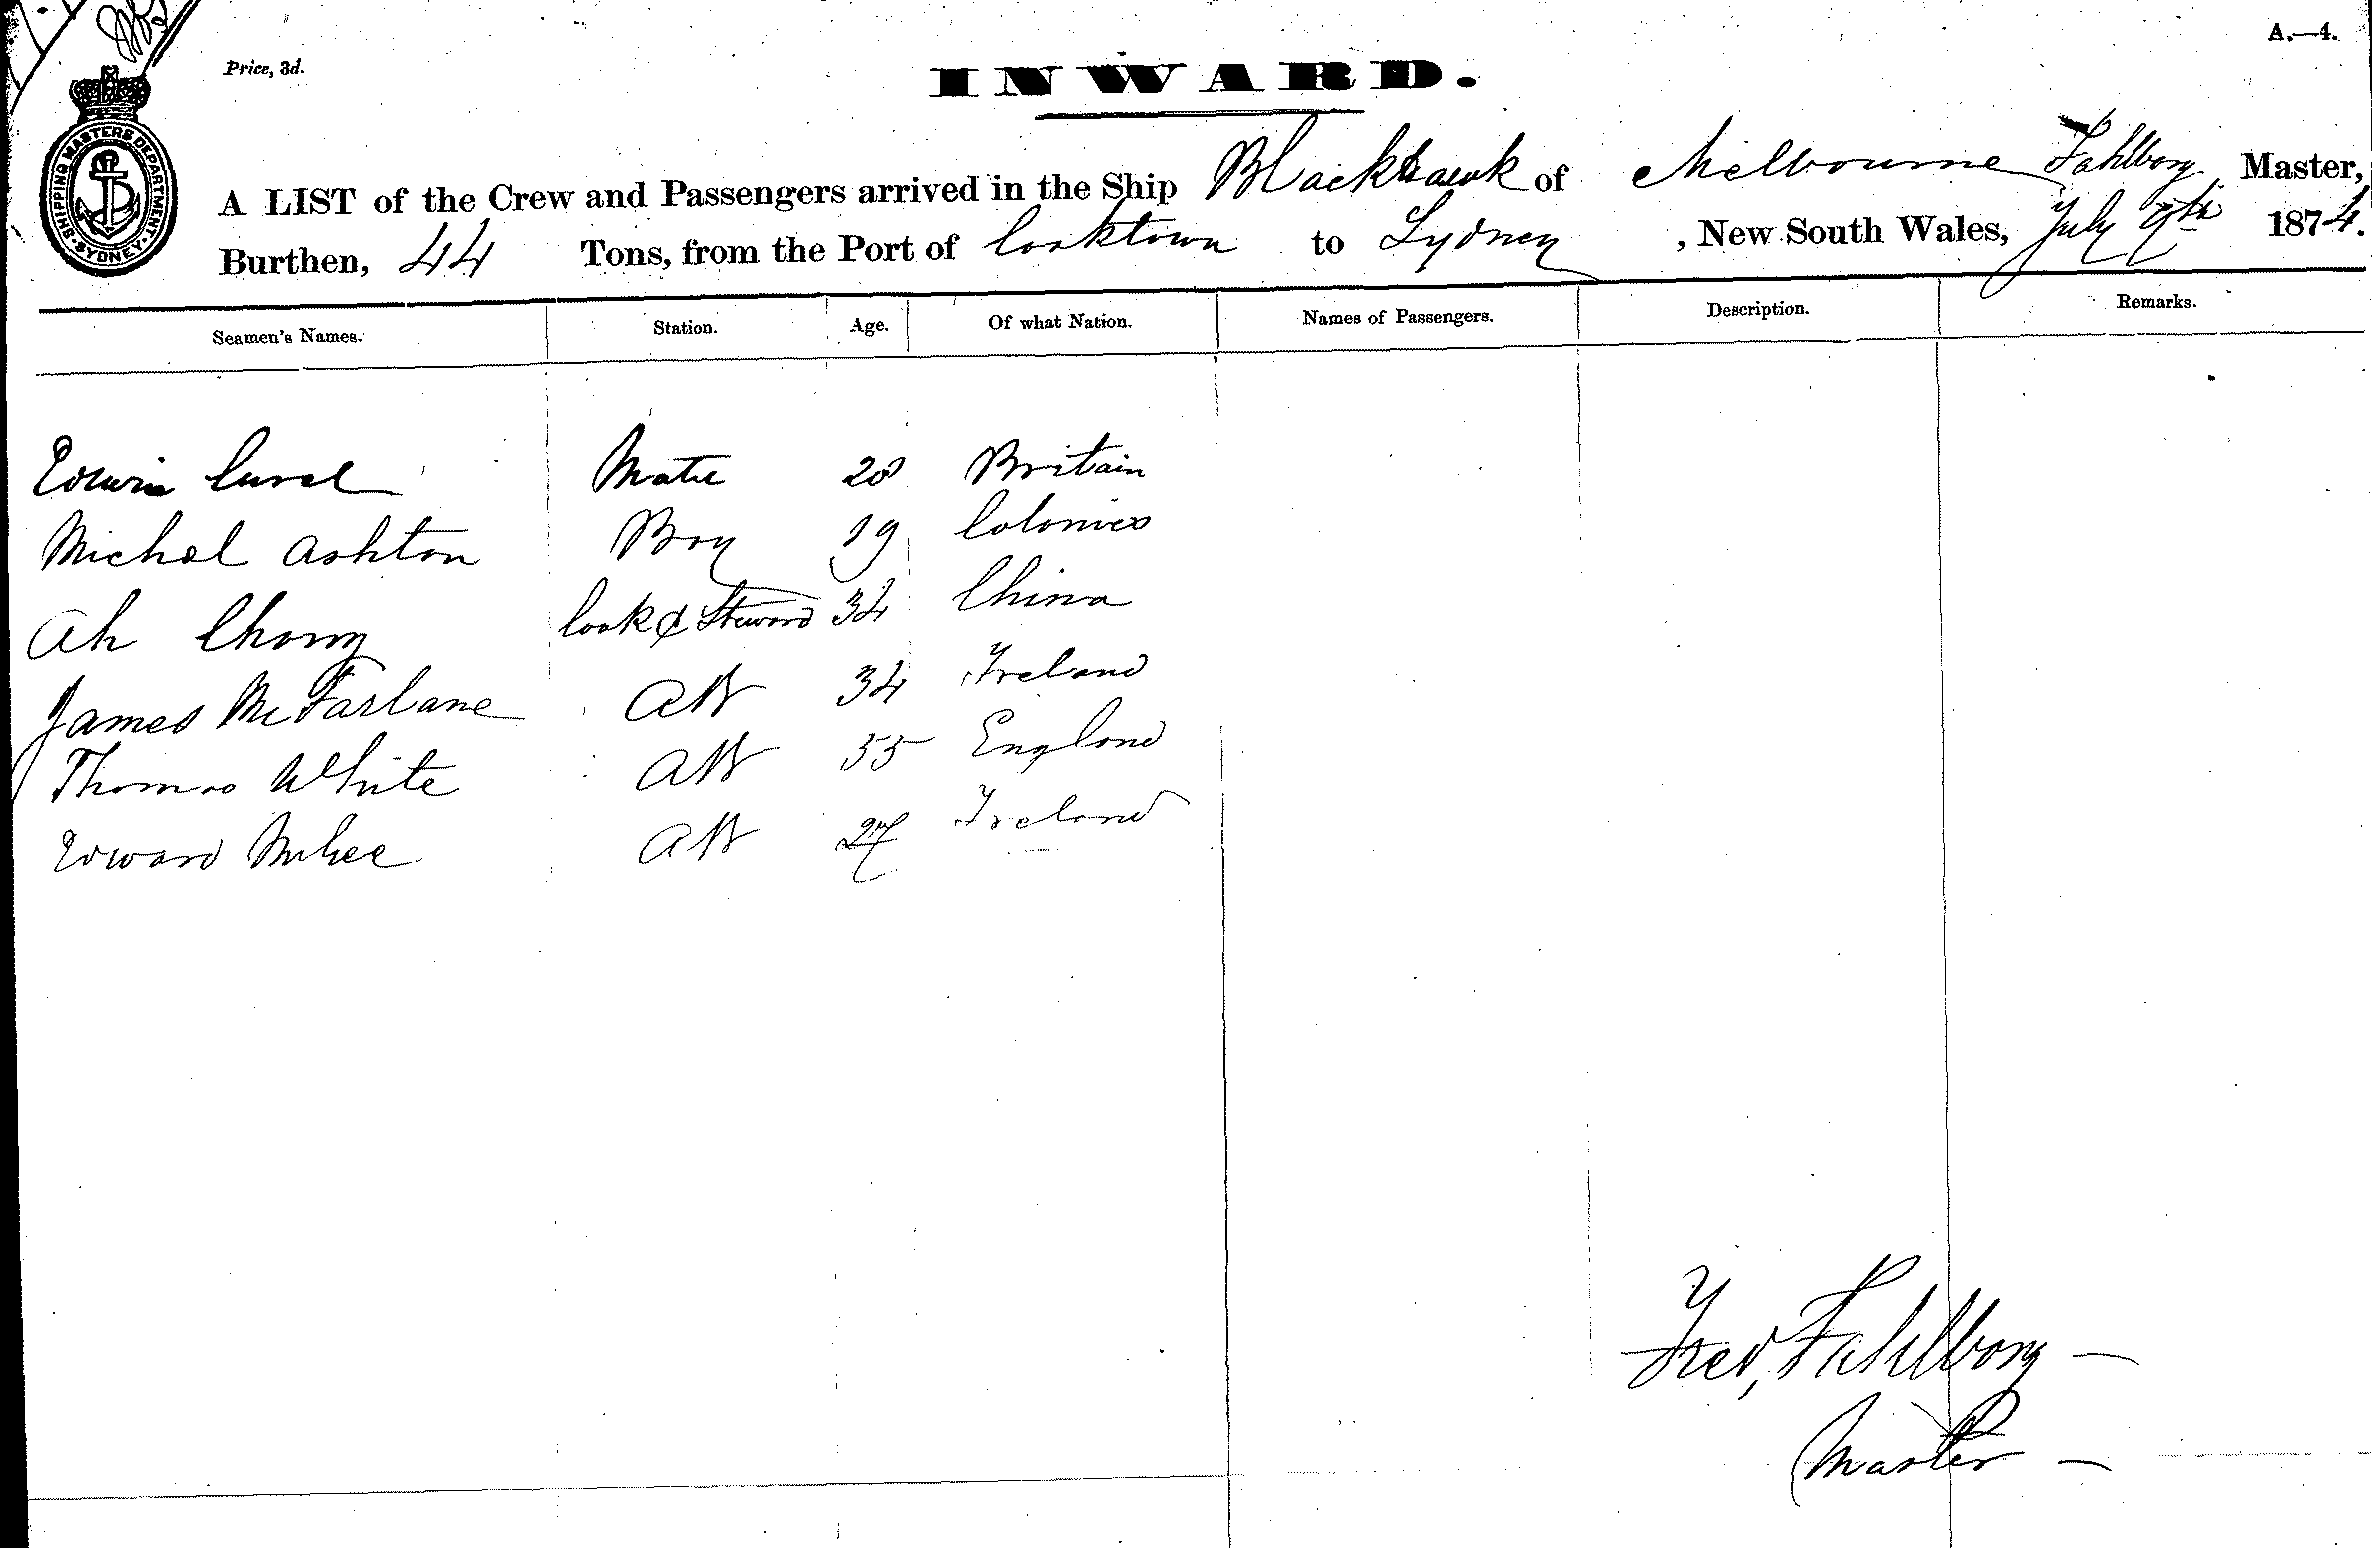 A.—4.
Price, 3d.
INWARD.
SHIPPING MASTERS DEPARTMENT · SYDNEY ·
A LIST of the Crew and Passengers arrived in the Ship Blackhawk of Melbourne Fahlborg Master,
Burthen, 44 Tons, from the Port of Cooktown to Sydney, New South Wales, July 9th 1874.
Seamen's Names. Station. Age. Of what Nation. Names of Passengers. Description. Remarks.
Edwin Mate 28 Britain
Michal Ashton Boy 19 Colonies
Ah Chong Cook & Steward 34 China
James McFarlane AB 34 Ireland
Thomas White AB 55 England
Edward AB 27 Ireland
Fred, Fahlborg —
Master —